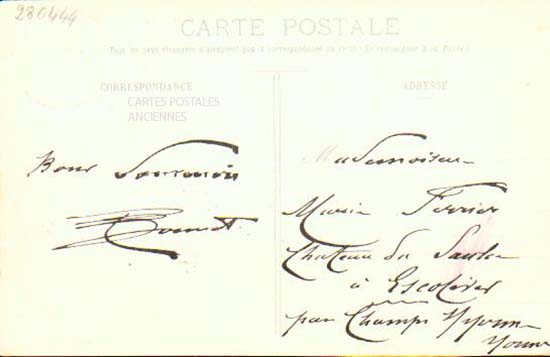 280444
CARTE POSTALE
Tous les pays étrangers n'acceptent pas la correspondance au recto (Se renseigner à la Poste)
CORRESPONDANCE
CARTES POSTALES
ANCIENNES
Bons Souvenirs
Bonnet
ADRESSE
Mademoiselle
Maria Ferrier
Chateau du Saulce
à Escolives
par Champs Yonne
Yonne